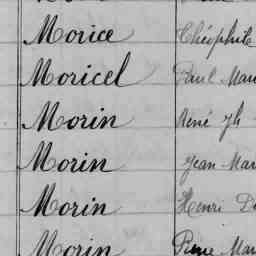 Morice Théophile
Moricel Paul Mar
Morin René Jh
Morin Jean Mar
Morin Henri D
Morin Pierre Mar